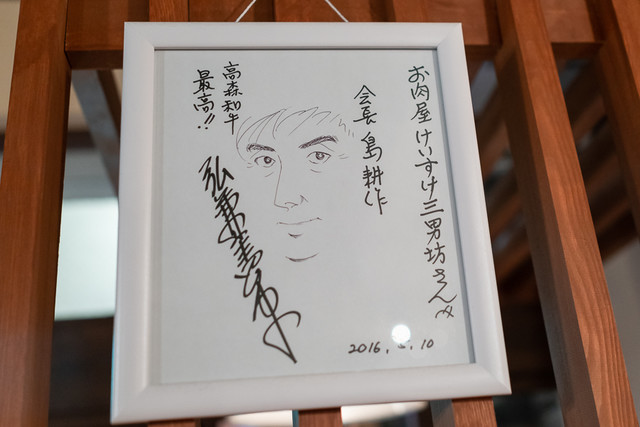 お肉屋けいすけ三男坊さんへ
会長 島耕作
高森和牛
最高!!
弘兼憲史
2016. . 10